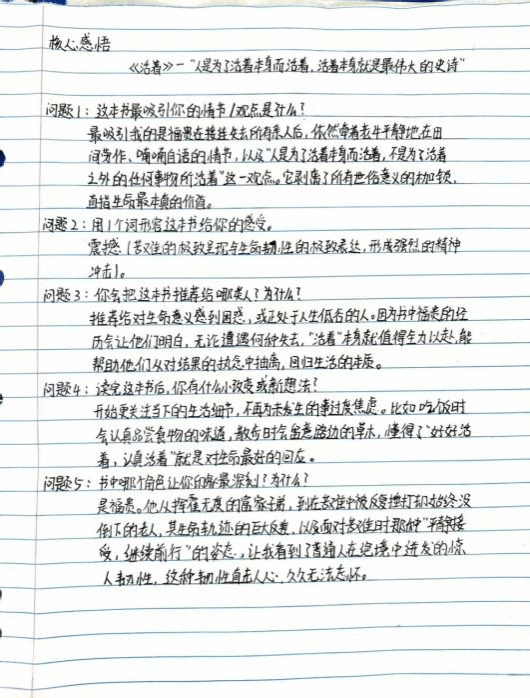 核心感悟
《活着》-“人是为了活着本身而活着，活着本身就是最伟大的史诗”
问题1：这本书最吸引你的情节/观点是什么？
最吸引我的是福贵在接连失去所有亲人后，依然牵着老牛平静地在田
间劳作、喃喃自语的情节，以及“人是为了活着本身而活着，不是为了活着
之外的任何事物所活着”这一观点。它剥离了所有世俗意义的枷锁，
直指生命最本真的价值。
问题2：用1个词形容这本书给你的感受。
震撼（苦难的极致呈现与生命韧性的极致表达，形成强烈的精神
冲击）。
问题3：你会把这本书推荐给哪类人？为什么？
推荐给对生命意义感到困惑，或正处于人生低谷的人。因为书中福贵的经
历会让他们明白，无论遭遇何种失去，“活着”本身就值得全力以赴，能
帮助他们从对结果的执念中抽离，回归生活的本质。
问题4：读完这本书后，你有什么小改变或新想法？
开始更关注当下的生活细节，不再为未发生的事过度焦虑。比如吃饭时
会认真品尝食物的味道，散步时会留意路边的草木，懂得了“好好活
着，认真活着”就是对生命最好的回应。
问题5：书中哪个角色让你印象最深刻？为什么？
是福贵。他从挥霍无度的富家子弟，到在苦难中被反复捶打却始终没
倒下的老人，其生命轨迹的巨大反差，以及面对苦难时那种“平静接
受，继续前行”的姿态，让我看到了普通人在绝境中迸发的惊
人韧性，这种韧性直击人心，久久无法忘怀。